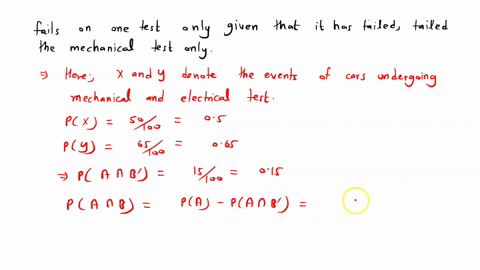 fails on one test only given that it has failed, failed
the mechanical test only.
⇒ Here; X and Y denote the events of cars undergoing
mechanical and electrical test.
P(X) = 50/100 = 0.5
P(Y) = 65/100 = 0.65
⇒ P(A ∩ B') = 15/100 = 0.15
P(A ∩ B) = P(A) - P(A ∩ B') =